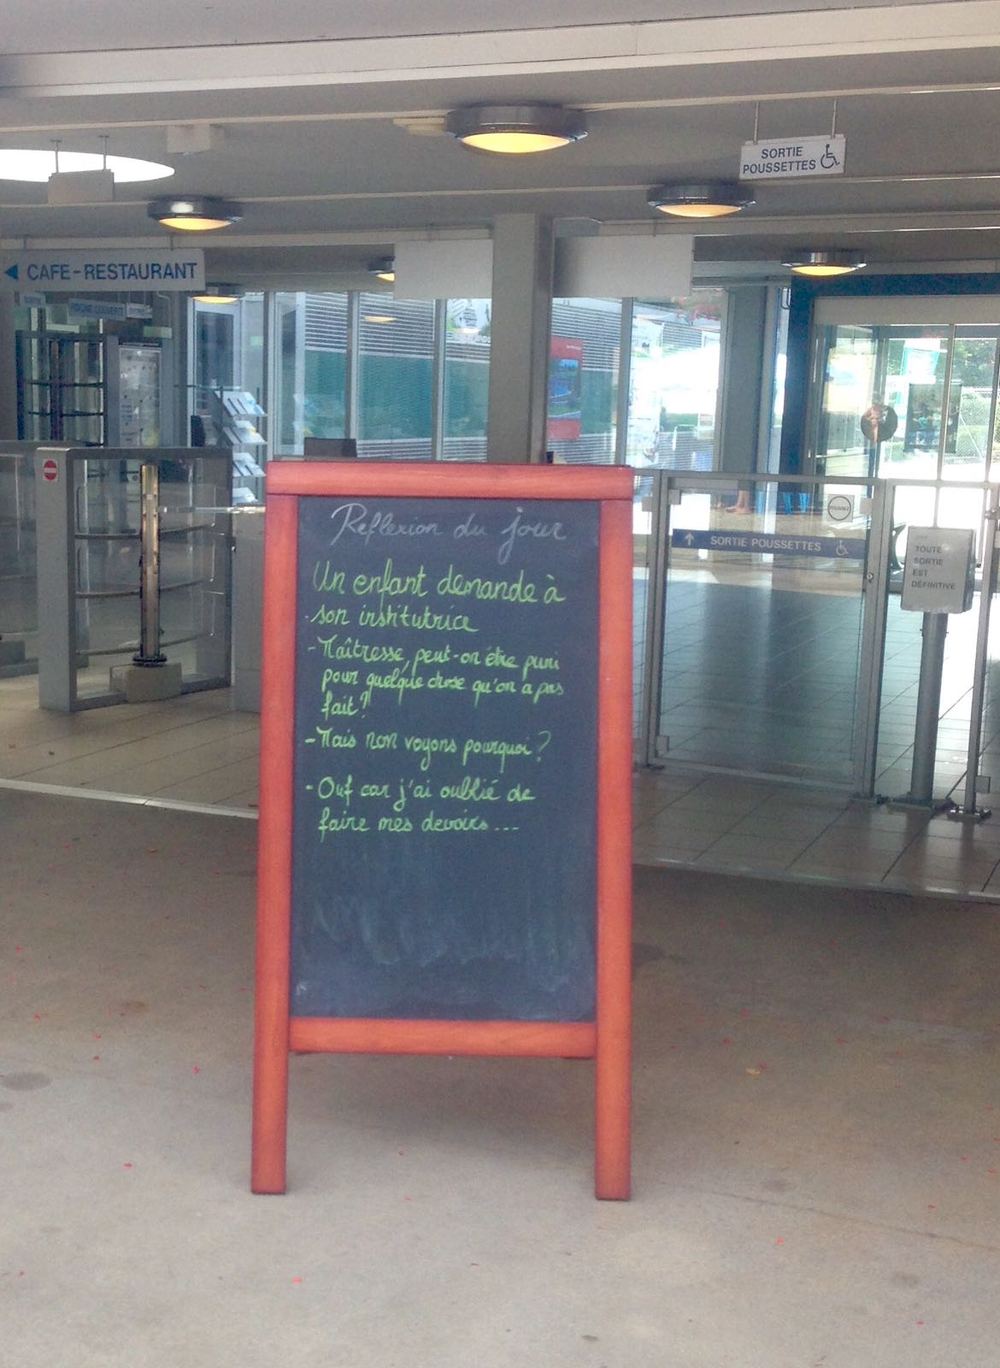 SORTIE
POUSSETTES
CAFE-RESTAURANT
Réflexion du jour
Un enfant demande à
son institutrice
- Maîtresse, peut-on être puni
pour quelque chose qu'on a pas
fait?
- Mais non voyons pourquoi?
- Ouf car j'ai oublié de
faire mes devoirs...
SORTIE POUSSETTES
TOUTE
SORTIE
EST
DÉFINITIVE